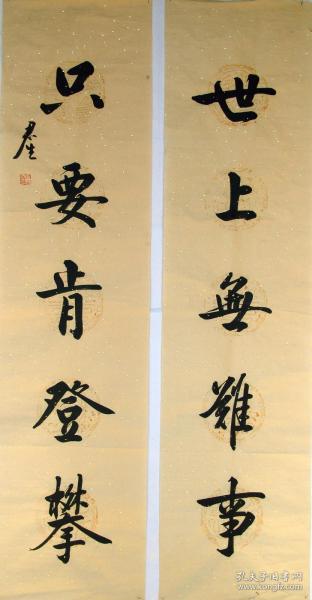 世上無難事
只要肯登攀
孔夫子旧书网
www.kongfz.com